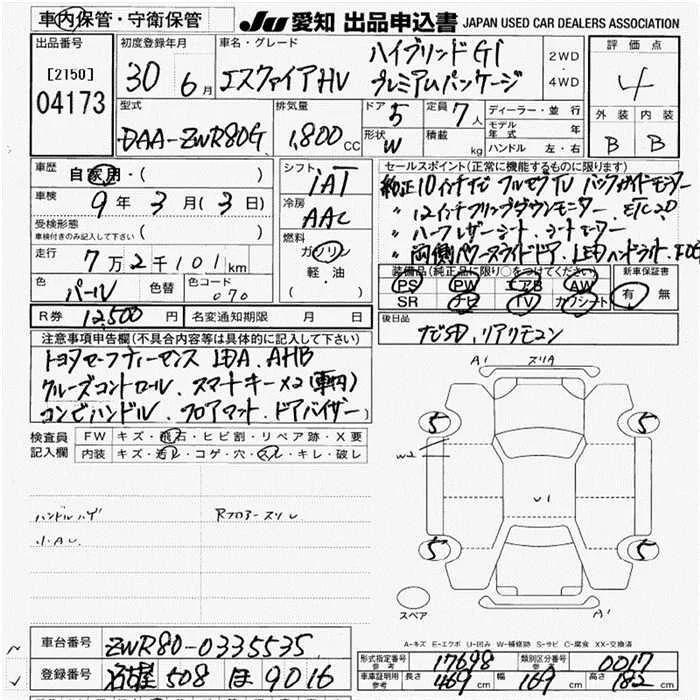 車内保管・守衛保管
JU 愛知 出品申込書 JAPAN USED CAR DEALERS ASSOCIATION
出品番号
[2150]
04173
初度登録年月
30年 6月
車名・グレード
エスクァイアHV
ハイブリッドGi
プレミアムパッケージ
2WD
・
4WD
評価点
4
外装 内装
B B
型式
DAA-ZWR80G
排気量
1,800 CC
ドア 5
形状 W
定員 7人
積載 kg
ディーラー・並行
モデル年式 年
ハンドル 左・右
車歴 自家用・( )
車検 9年 3月(3日)
受検形態
車検付きのみ記入して下さい ( )
走行 7万2千101km
色 パール 色替 色コード 070
シフト IAT
冷房 AAC
燃料
ガソリン
軽・油
( )
セールスポイント(正常に機能するものに限ります)
純正10インチナビ フルセグTV バックガイドモニター
〃 12インチフリップダウンモニター、ETC2.0
〃 ハーフレザーシート、シートヒーター
〃 両側パワースライドドア、LEDヘッドライト、FOG
装備品(純正品に限り○をつけてください)
PS PW エアB AW
SR ナビ TV カワシート
新車保証書
有・無
R券 12,500円 名変通知期限 月 日
後日品
ナビSD、リアリモコン
注意事項申告欄(不具合内容等は具体的に記入して下さい)
トヨタセーフティーセンス LDA、AHB
クルーズコントロール、スマートキー×2(車内)
コンビハンドル、フロアマット、ドアバイザー
検査員
記入欄
FW キズ・飛石・ヒビ割・リペア跡・X要
内装 キズ・汚レ・コゲ・穴・スレ・キレ・破レ
ハンドルハゲ Rフロアースリレ
A1 スリA
5 5
W2
U1
5 5
スペア
A1
A-キズ E-エクボ U-凹み W-補修跡 S-サビ C-腐食 XX-交換済
車台番号 ZWR80-0335535
登録番号 名古屋 508 ほ 9016
形式指定番号
参考
17698
類別区分番号
参考
0017
車庫証明用
参考
長さ 469cm 幅 169cm 高さ 182cm